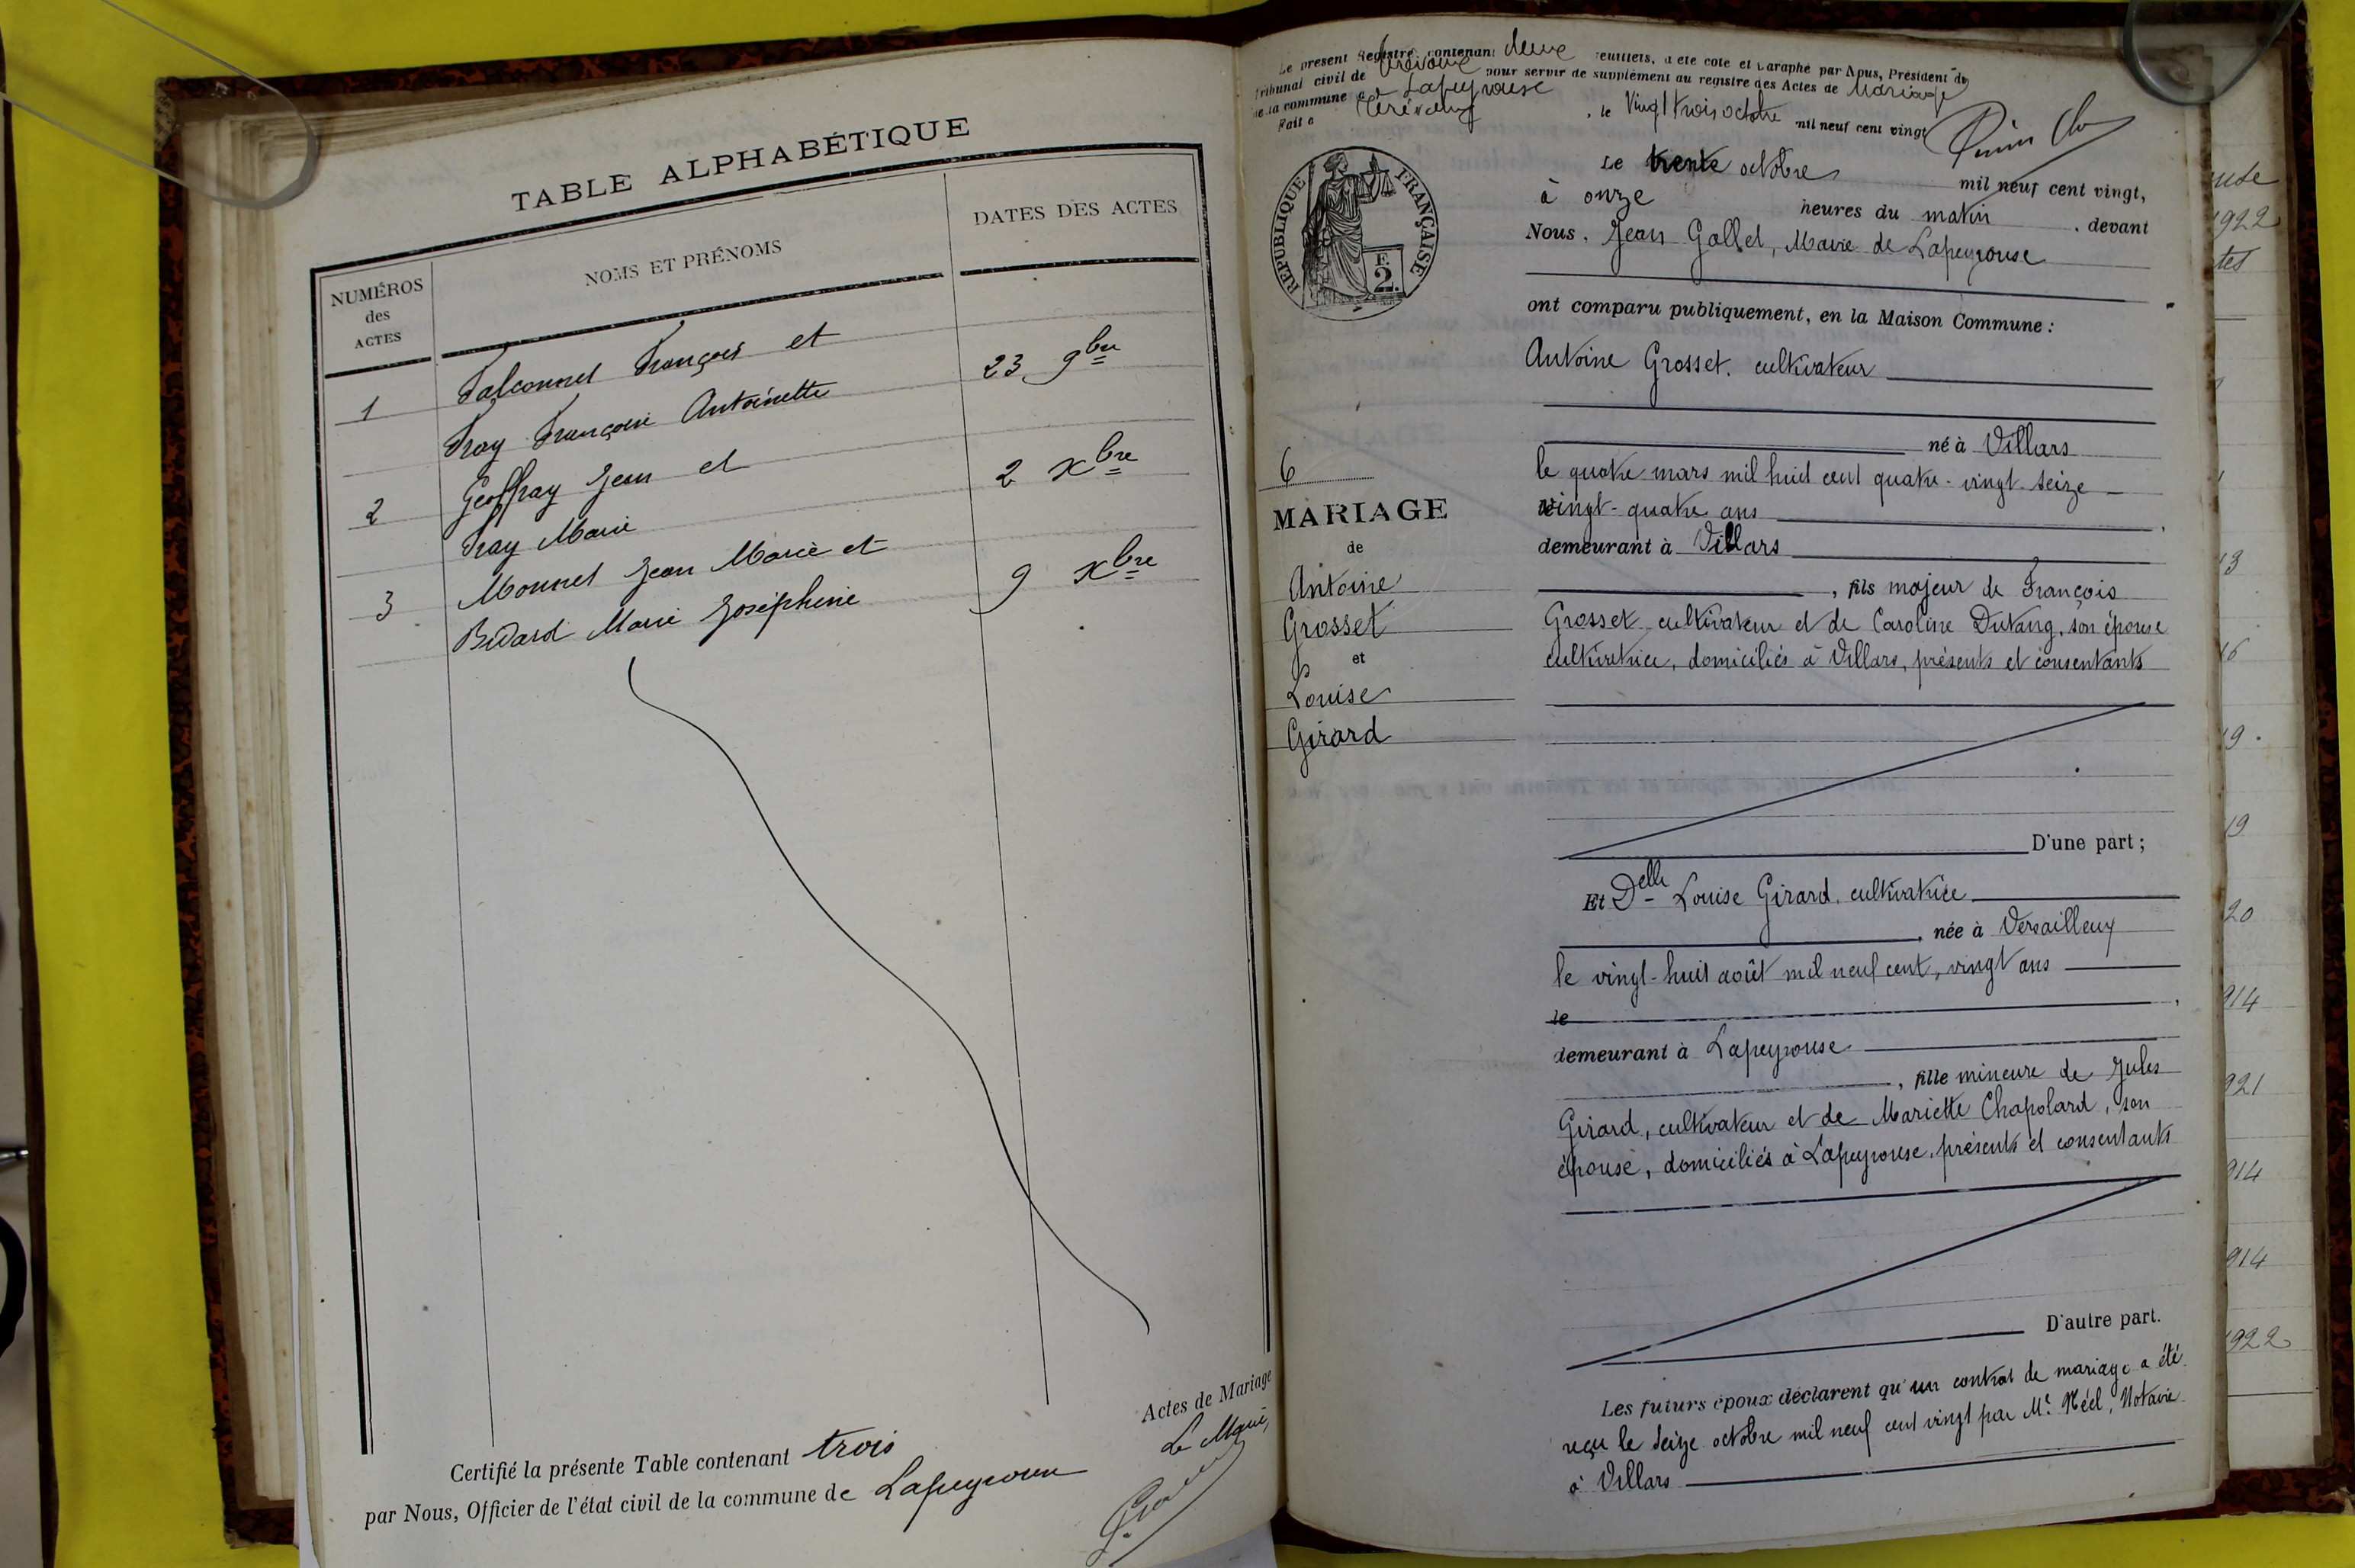 TABLE ALPHABÉTIQUE
NUMÉROS
des
ACTES
NOMS ET PRÉNOMS
DATES DES ACTES
1 Falconnet François et 23 9bre
Fray Françoise Antoinette
2 Geoffray Jean et 2 Xbre
Fray Marie
3 Monnet Jean Marie et 9 Xbre
Bidard Marie Joséphine
Certifié la présente Table contenant trois Actes de Mariage
par Nous, Officier de l'état civil de la commune de Lapeyrouse
Le Maire,
Le présent Registre, contenant deux feuillets, a été coté et paraphé par Nous, Président du
Tribunal civil de Trévoux pour servir de supplément au registre des Actes de Mariage
de la commune de Lapeyrouse
Fait à Trévoux, le Vingt trois octobre mil neuf cent vingt
RÉPUBLIQUE FRANÇAISE
F.
2.
Le trente octobre mil neuf cent vingt,
à onze heures du matin, devant
Nous, Jean Gallet, Maire de Lapeyrouse
ont comparu publiquement, en la Maison Commune :
Antoine Grosset, cultivateur
né à Villars
le quatre mars mil huit cent quatre-vingt-seize
vingt-quatre ans
demeurant à Villars
, fils majeur de François
Grosset cultivateur et de Caroline Dutang, son épouse
cultivatrice, domiciliés à Villars, présents et consentants
6
MARIAGE
de
Antoine
Grosset
et
Louise
Girard
D'une part ;
Et Delle Louise Girard, cultivatrice
, née à Versailleux
le vingt-huit août mil neuf cent, vingt ans
le
demeurant à Lapeyrouse
, fille mineure de Jules
Girard, cultivateur et de Mariette Chapolard, son
épouse, domiciliés à Lapeyrouse, présents et consentants
D'autre part.
Les futurs époux déclarent qu'un contrat de mariage a été
reçu le seize octobre mil neuf cent vingt par Me Héel, Notaire
à Villars
1922
tes
13
16
19
19
20
914
921
914
914
1922